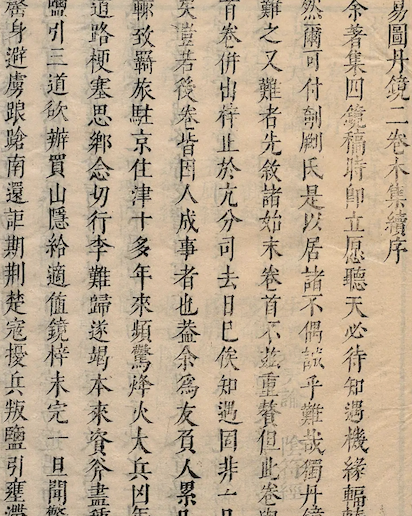 易圖丹鏡二卷本集續序
余著集四鏡稿時即立愿聽天必待知遇機緣輻
然爾可付剞劂氏是以居諸不偶誠乎難哉獨丹
難之又難者先敘諸始末卷首不茲重贅但此卷
首卷併出梓止於亢分司去日已俟知遇固非一
矣豈若後卷皆因人成事者也葢余為友負人累
輙致羈旅駐京住津十多年來頻驚烽火大兵凶年
道路梗塞思鄉念切行李難歸遂竭本來資斧盡
鹽引三道欲辦買山隱給適值鏡梓未完一旦聞
罄身避虜踉蹌南還詎期荊楚寇擾兵叛鹽引壅滯